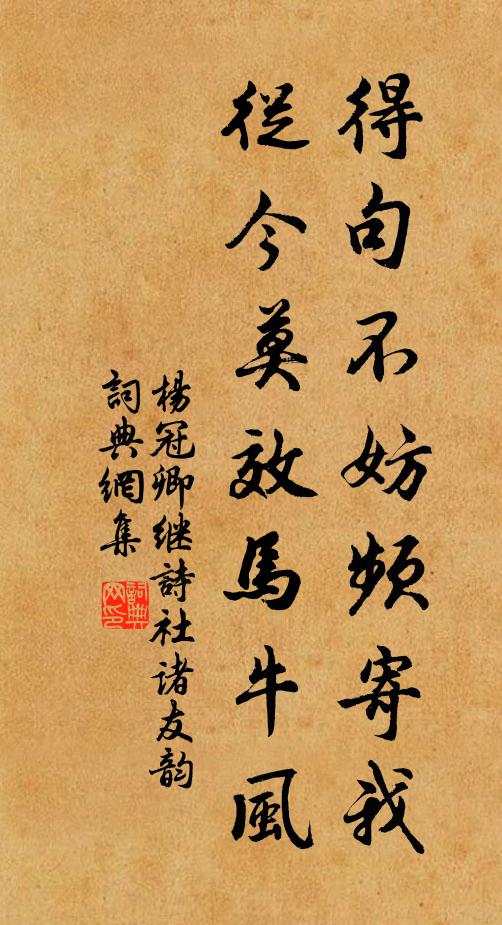 得句不妨頻寄我
從今莫效馬牛風
楊冠卿繼詩社诸友韵
詞典網集
詞典
网印